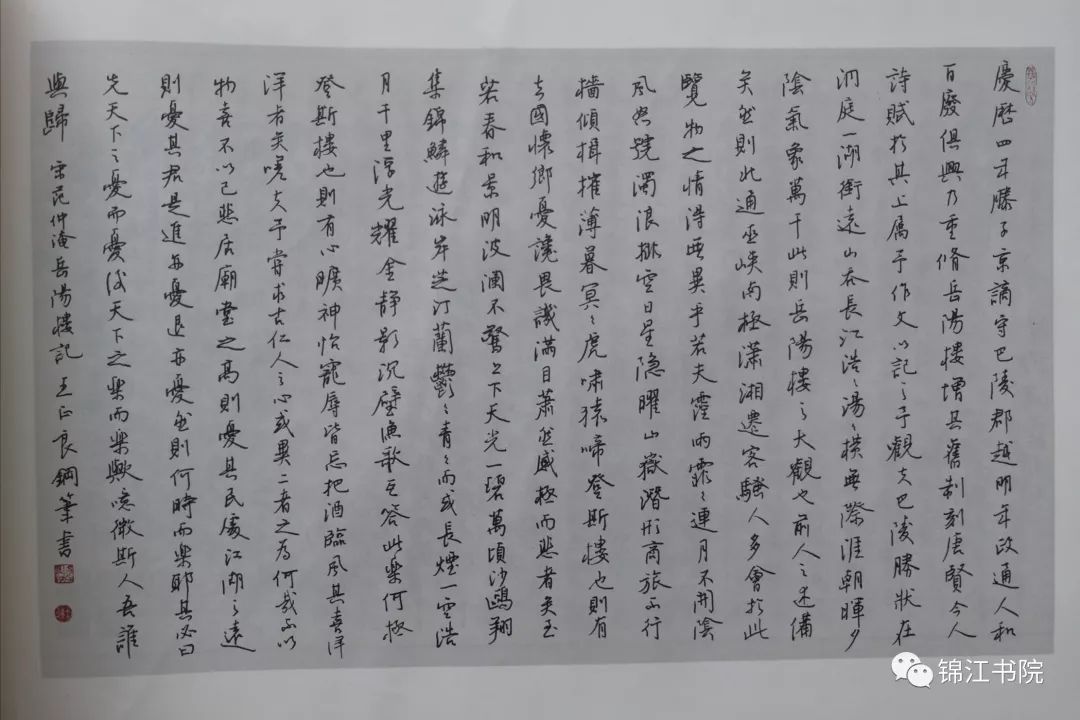 慶歷四年滕子京謫守巴陵郡越明年政通人和
百廢俱興乃重脩岳陽樓增其舊制刻唐賢今人
詩賦於其上属予作文以記之予觀夫巴陵勝狀在
洞庭一湖銜遠山吞長江浩〻湯〻橫無際涯朝暉夕
陰氣象萬千此則岳陽樓之大觀也前人之述備
矣然則北通巫峽南極瀟湘遷客騷人多會於此
覽物之情得無異乎若夫霪雨霏〻連月不開陰
風怒號濁浪排空日星隐曜山嶽潛形商旅不行
檣傾楫摧薄暮冥〻虎嘯猿啼登斯樓也則有
去國懷鄉憂讒畏譏滿目蕭然感極而悲者矣至
若春和景明波瀾不驚上下天光一碧萬頃沙鷗翔
集錦鱗遊泳岸芷汀蘭鬱〻青〻而或長煙一空浩
月千里浮光耀金静影沉璧漁歌互答此樂何極
登斯樓也則有心曠神怡寵辱皆忘把酒臨風其喜洋
洋者矣嗟夫予嘗求古仁人之心或異二者之為何哉不以
物喜不以己悲居廟堂之高則憂其民處江湖之遠
則憂其君是進亦憂退亦憂然則何時而樂耶其必曰
先天下之憂而憂後天下之樂而樂歟噫微斯人吾誰
與歸 宋范仲淹岳陽樓記 王正良鋼筆書
锦江书院